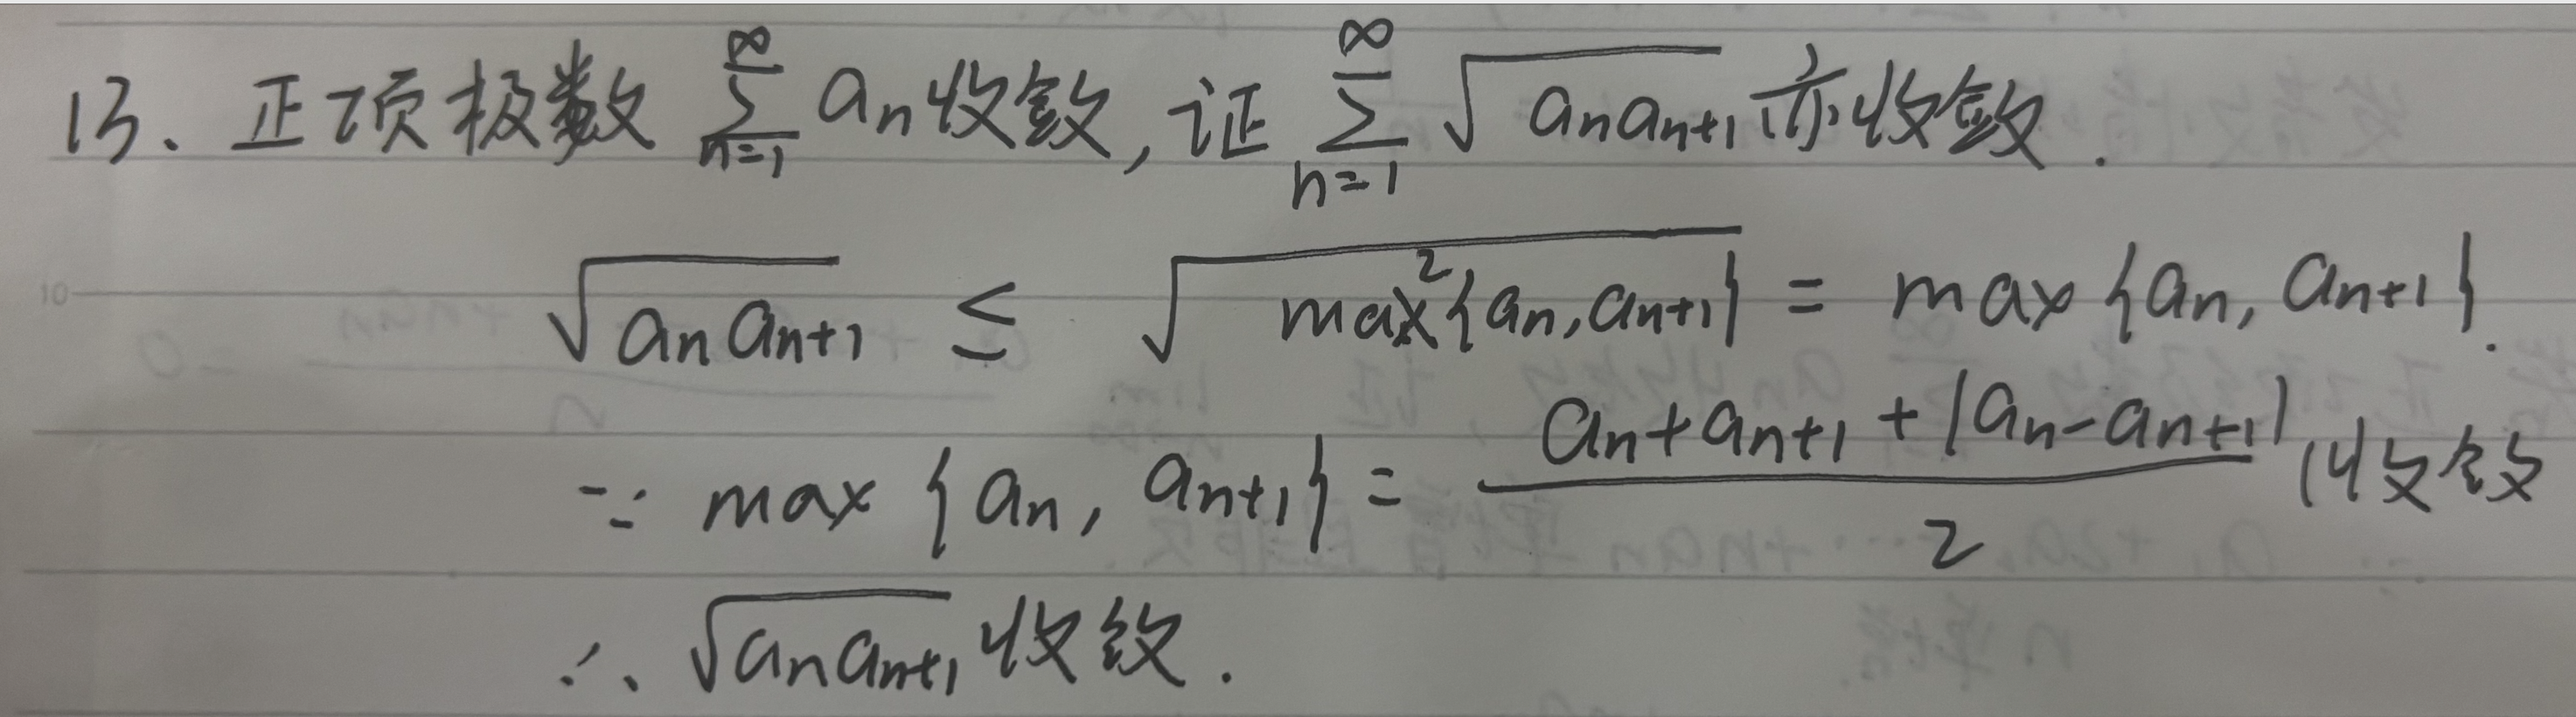 13、正项极数 $\sum_{n=1}^{\infty} a_n$ 收敛, 证 $\sum_{n=1}^{\infty} \sqrt{a_n a_{n+1}}$ 亦收敛.
$\sqrt{a_n a_{n+1}} \leq \sqrt{max^2\{a_n, a_{n+1}\}} = max\{a_n, a_{n+1}\}.$
∵ $max\{a_n, a_{n+1}\} = \frac{a_n + a_{n+1} + |a_n - a_{n+1}|}{2}$ 收敛
∴ $\sqrt{a_n a_{n+1}}$ 收敛.